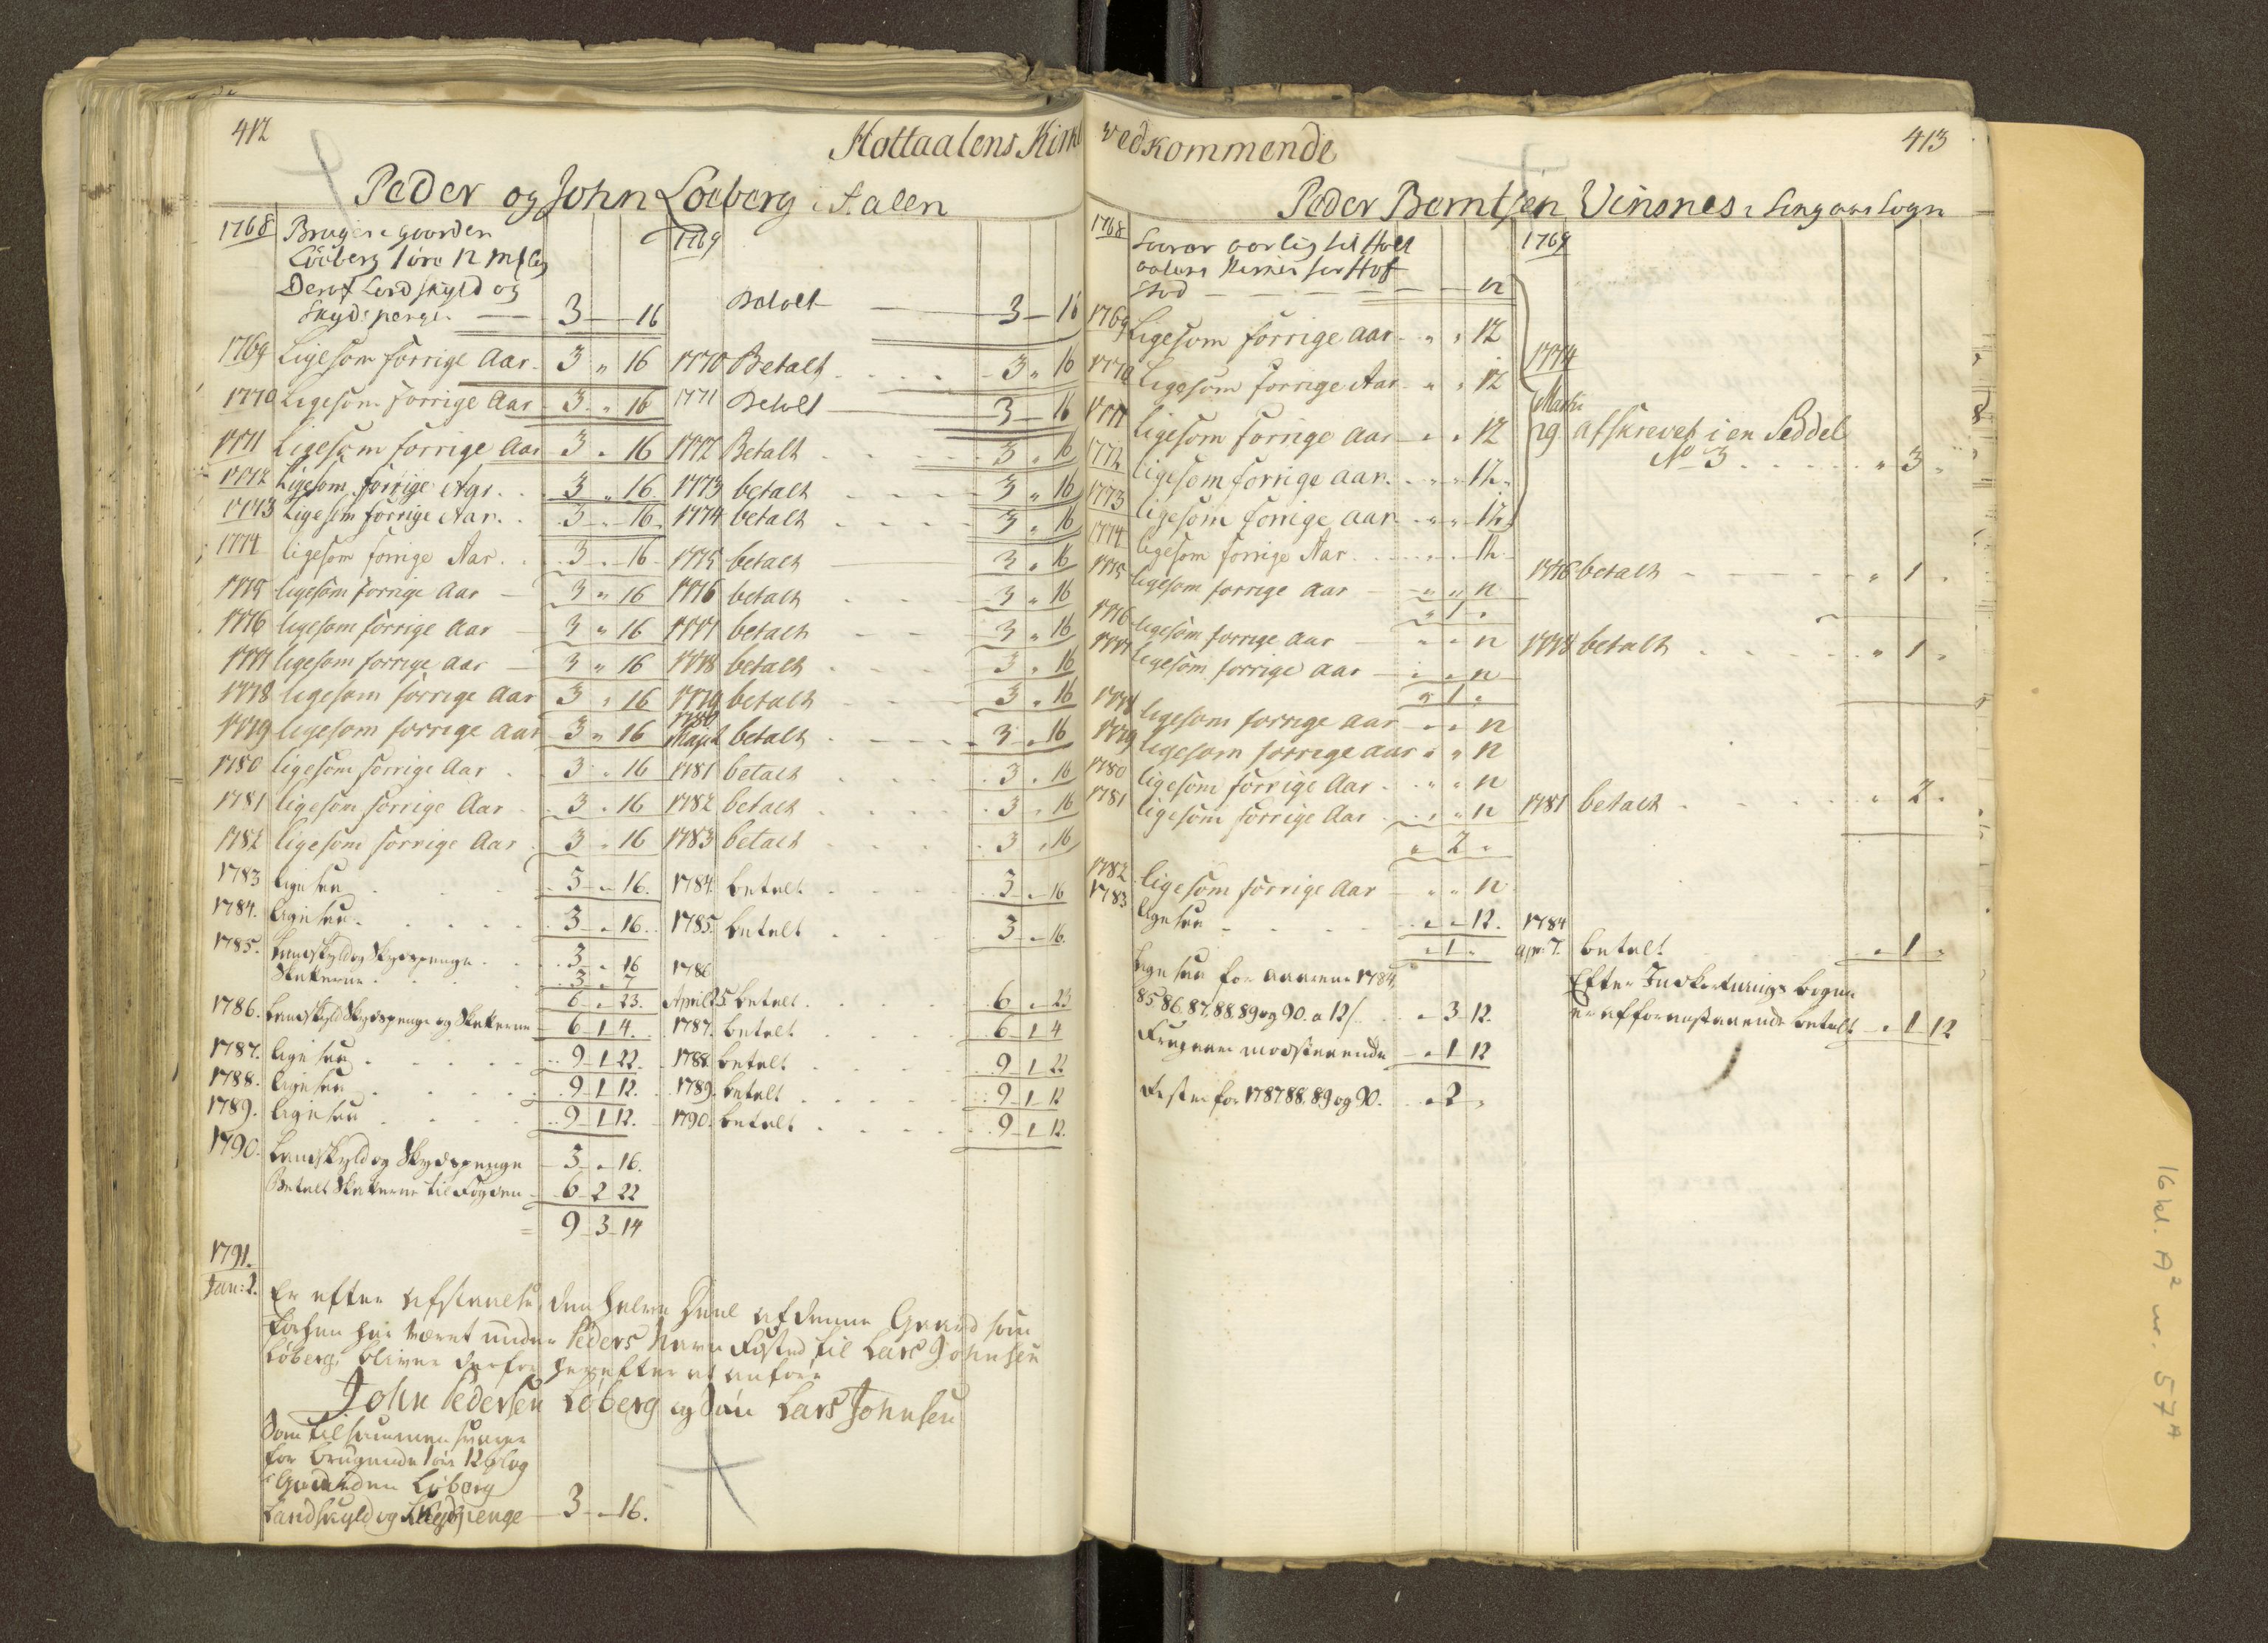 412
Hottaalens Kirke
Peder og John Löeberg i Aalen
1768 Bruger i gaarden 1769
Löeberg 1 öre 12 mkl
Deraf Landskyld og
Skydspenge 3 16 Betalt 3 16
1769 Ligesom forrige Aar 3 " 16 1770 Betalt 3 " 16
1770 Ligesom forrige Aar 3 " 16 1771 Betalt 3 16
1771 Ligesom forrige Aar 3 " 16 1772 Betalt 3 " 16
1772 Ligesom forrige Aar 3 " 16 1773 betalt 3 " 16
1773 Ligesom forrige Aar 3 " 16 1774 betalt 3 " 16
1774 ligesom forrige Aar 3 " 16 1775 betalt 3 " 16
1775 ligesom forrige Aar 3 " 16 1776 betalt 3 " 16
1776 ligesom forrige Aar 3 " 16 1777 betalt 3 " 16
1777 ligesom forrige Aar 3 " 16 1778 betalt 3 " 16
1778 ligesom forrige Aar 3 " 16 1779 betalt 3 " 16
1779 ligesom forrige Aar 3 " 16 1780 Maji betalt 3 " 16
1780 ligesom forrige Aar 3 " 16 1781 betalt 3 " 16
1781 ligesom forrige Aar 3 " 16 1782 betalt 3 " 16
1782 ligesom forrige Aar 3 " 16 1783 betalt 3 " 16
1783 ligesaa 3 " 16. 1784. betalt 3 " 16
1784. ligesaa 3 " 16. 1785. betalt 3 " 16.
1785. Landskyld og Skydspenge 3 " 16 1786
Skatterne 3 " 7
6 " 23. April 25 betalt 6 " 23
1786. Landskyld Skydspenge og Skatterne 6 1 4. 1787. betalt 6 1 4
1787. ligesaa 9 1 22. 1788 betalt 9 1 22
1788. ligesaa 9 1 12. 1789. betalt 9 1 12
1789. ligesaa 9 1 12. 1790. betalt 9 1 12.
1790. Landskyld og Skydspenge 3 " 16.
Betalt Skatterne til Fogden 6 2 22
9 3 14
1791.
Jan: 2. Er efter Afstaaelse den halve Deel af denne Gaard som
forhen har været under Peders Navn fæsted til Lars Johnsen
Löberg, bliver derfor herefter at anföre
John Pedersen Löberg og Sön Lars Johnsen
Som tilsammen svarer
for brugende 1 öre 12 mklog
i Gaarden Löberg
Landskyld og Skydspenge 3 " 16.
vedkommende
413
Peder Berntsen Vinsnes i Singaas Sogn
1768 Svarer aarlig til Holt 1769
aalens Kirke for Hof
Stod 12
1769 Ligesom forrige Aar " " 12
1770 Ligesom forrige Aar " " 12 1774
1771 Ligesom forrige Aar " " 12 Martii 29 afskrevet i en Seddel
No 3 " 3 "
1772 ligesom forrige Aar " " 12
1773 ligesom forrige Aar " " 12
1774 ligesom forrige Aar " " 12
1775 ligesom forrige Aar " " 12 1776 betalt " 1 "
" 1 "
1776 ligesom forrige Aar " " 12 1778 betalt " 1 "
1777 ligesom forrige Aar " " 12
" 1 "
1778 ligesom forrige Aar " " 12
1779 ligesom forrige Aar " " 12
1780 ligesom forrige Aar " " 12
1781 ligesom forrige Aar " " 12 1781 betalt " 2 "
" 2 "
1782 ligesom forrige Aar " " 12
1783 ligesaa " " 12. 1784
" 1 " apr: 7. betalt " 1 "
ligesaa for Aarene 1784, Efter Indkortnings bogen
85. 86. 87. 88. 89 og 90. a 12 s. " 3 12. er afforanstaaende betalt " 1 12
Fragaar modstaaende " 1 12
Rester for 1787 88. 89 og 90. " 2 "
16 kl. A² nr. 57ᴬ